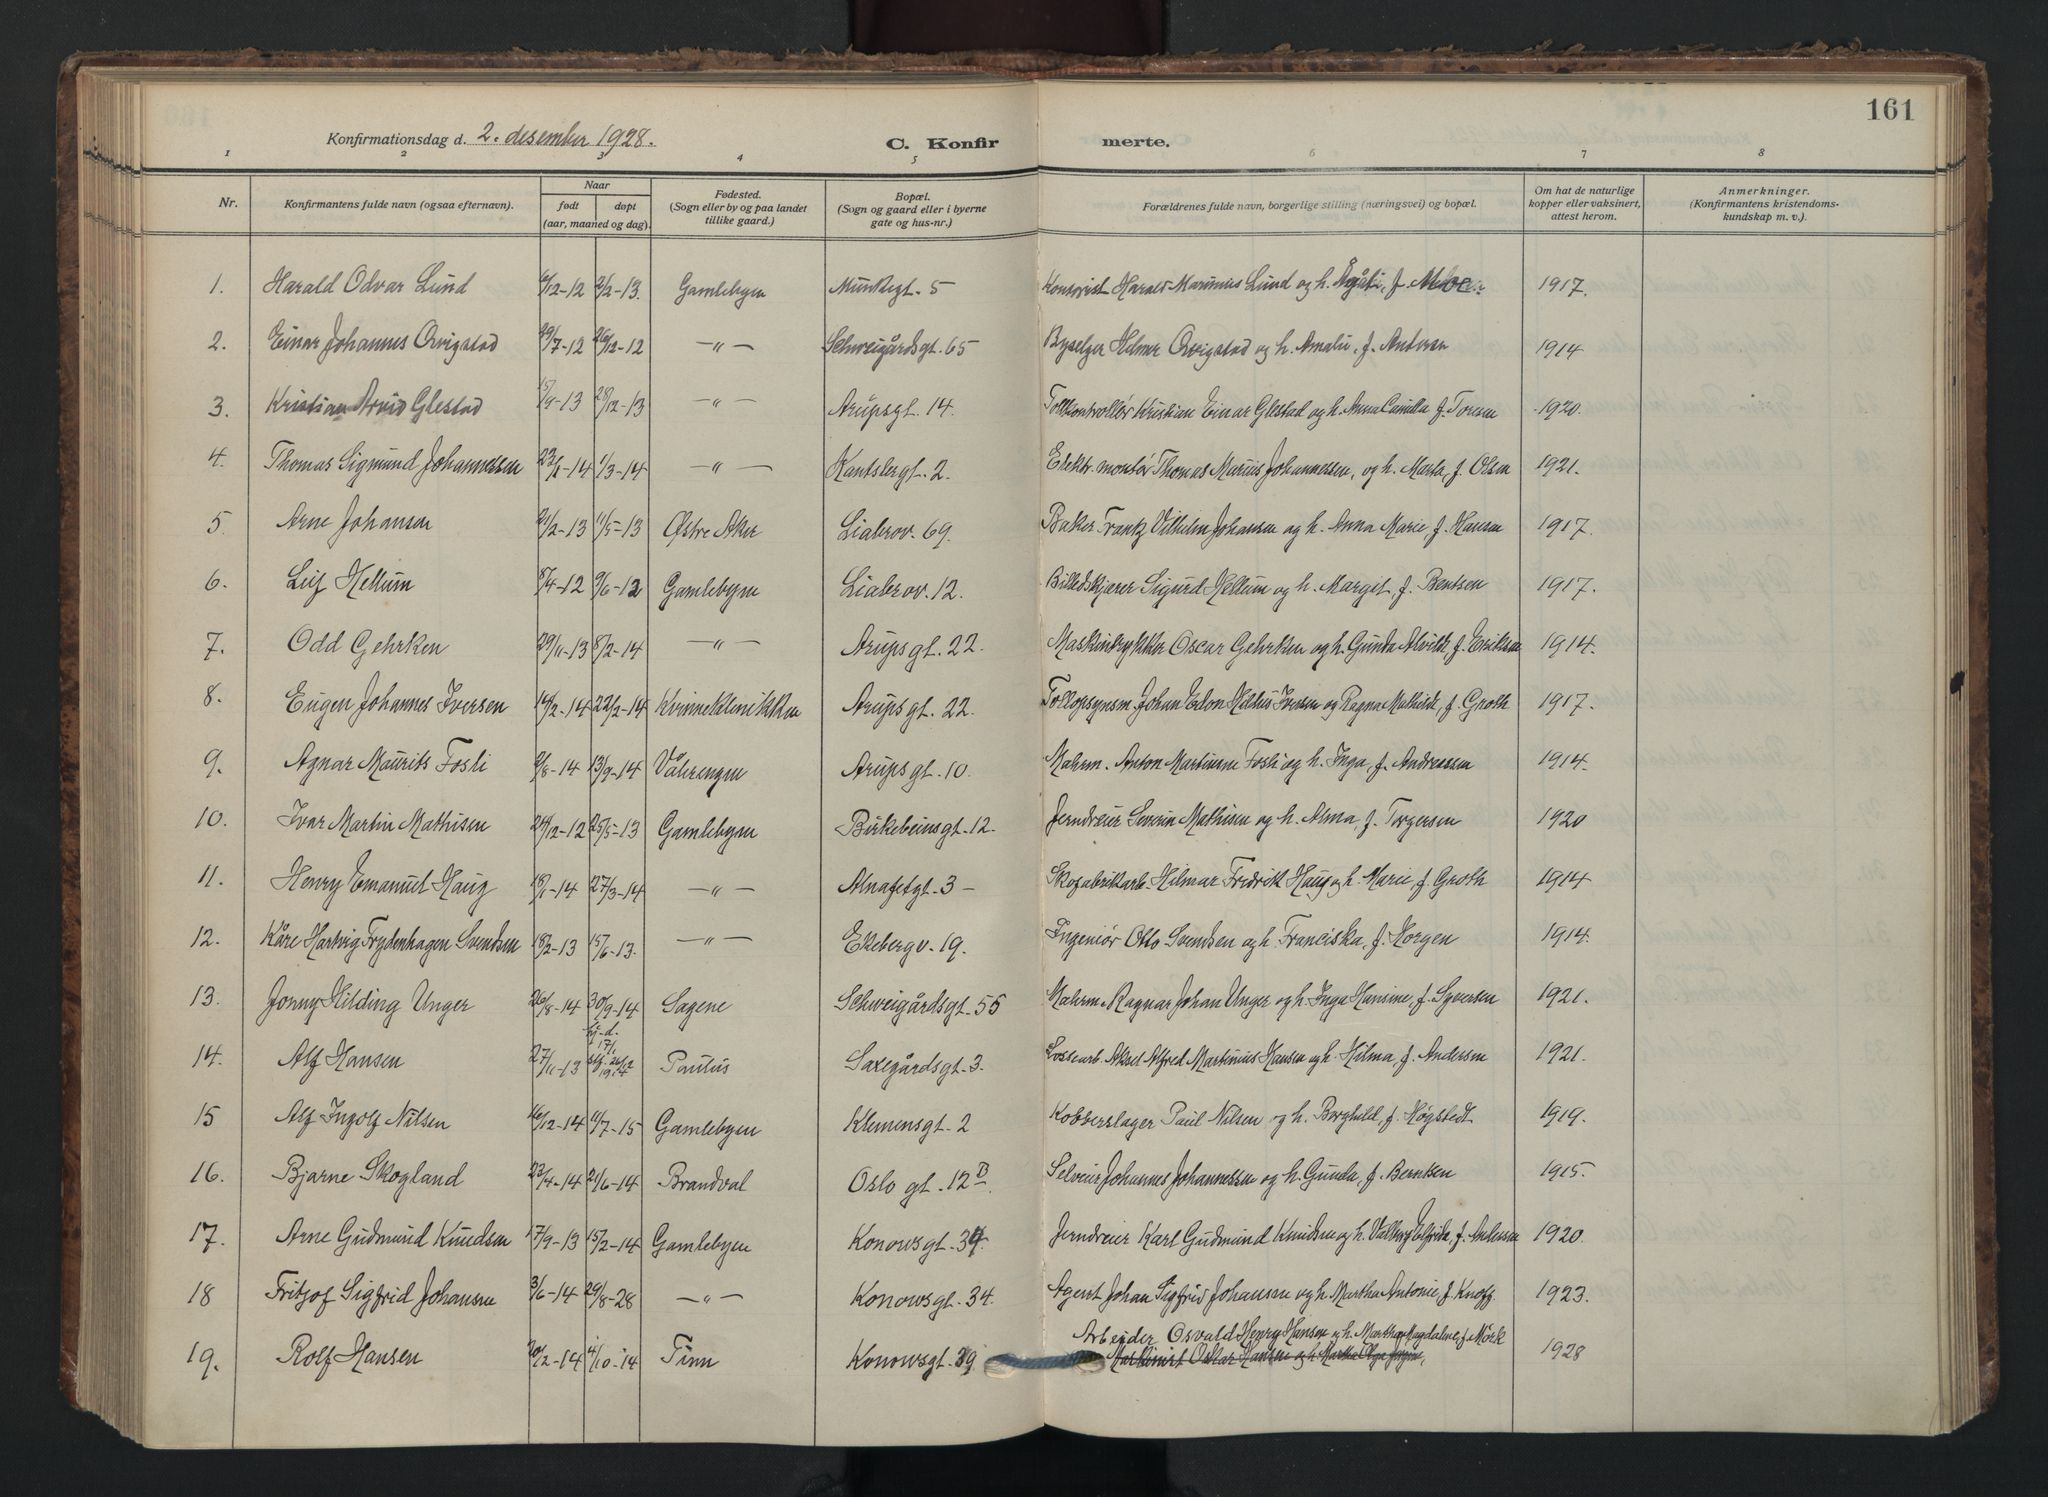 161
Konfirmationsdag d. 2. desember 1928.
C. Konfir merte.
1 2 3 4 5 6 7 8
Nr. Konfirmantens fulde navn (ogsaa efternavn). Naar født døpt (aar, maaned og dag). Fødested. (Sogn eller by og paa landet tillike gaard.) Bopæl. (Sogn og gaard eller i byerne gate og hus-nr.) Forældrenes fulde navn, borgerlige stilling (næringsvei) og bopæl. Om hat de naturlige kopper eller vaksinert, attest herom. Anmerkninger. (Konfirmantens kristendomskundskap m. v.)
1. Harald Odvar Lund 6/12-12 2/2-13. Gamlebyen Munkegt. 5 Kontorist Harald Marinius Lund og h. f. Moe 1917.
2. Einar Johannes Qvigstad 29/7-12 26/12-12 —"— Schweigårdsgt. 65 Byselger Hilmar Qvigstad og h. Amalie, f. Andersen 1914
3. Kristian Arvid Glestad 15/9-13 28/12-13 —"— Arupsgt. 14. Tollkontrollør Kristian Einar Glestad og h. Anna Camilla f. Toresen 1920.
4. Thomas Sigmund Johannessen 23/1-14 1/3-14 —"— Kanslergt. 2. Elektr. montør Thomas Marius Johannessen, og h. Marta, f. Olsen 1921.
5 Arne Johansen 21/2-13 11/5-13 Østre Aker Liabrov. 69. Baker Frantz Vilhelm Johansen og h. Anna Marie, f. Hansen 1917.
6. Leif Hellum 8/4-12 9/6-12 Gamlebyen Liabrov. 12. Billedskjærer Sigurd Hellum og h. Margit, f. Bentsen 1917.
7. Odd Gehrken 29/11-13 8/2-14 —"— Arupsgt. 22. Maskintrykker Oscar Gehrken og h. Gunda Alvilde, f. Eriksen 1914.
8. Eugen Johannes Iversen 14/2-14 22/2-14 Kvinneklinikken Arupsgt. 22. Tollopsynsm. Johan Edon Iversen og Ragna Mathilde, f. Groth 1917.
9. Agnar Maurits Fosli 2/8-14 13/9-14 Vålerengen Arupsgt. 10. Malerm. Anton Martinius Fosli og h. Inga, f. Andreassen 1914.
10. Ivar Martin Mathisen 24/12-12 25/5-13 Gamlebyen Birkebeinsgt. 12. Jerndreier Severin Mathisen og h. Alma, f. Torgersen 1920
11. Henry Emanuel Haug 18/1-14 27/3-14 —"— Alnafetgt. 3 – Skofabrikarb. Hilmar Fredrik Haug og h. Marie, f. Groth 1914
12. Kåre Hartvig Frydenhagen Svendsen 18/2-13 15/6-13. —"— Ekebergv. 19. Ingeniør Otto Svendsen og h. Franciska, f. Horgen 1914.
13. Jonny Hilding Unger 26/8-14 30/9-14 Sagene Schweigårdsgt. 55 Malerm. Ragnar Johan Unger og h. Inga Hansine, f. Syversen 1921.
14. Alf Hansen 27/11-13 hj-d. 17/1 1914 Paulus Saxegårdsgt. 3. Lossearb. Aksel Alfred Martinius Hansen og h. Hilma, f. Andersen 1921.
15 Alf Ingolf Nilsen 16/12-14 11/7-15 Gamlebyen Klemensgt. 2 Kobberslager Paul Nilsen og h. Borghild, f. Høgstedt 1919.
16. Bjarne Skogland 23/4-14 21/6-14 Brandval Oslo gt. 12 B. Selveier Johannes Johannessen og h. Gunda, f. Berntsen 1915.
17. Arne Gudmund Knudsen 17/9-13 15/2-14 Gamlebyen Konowsgt. 34. Jerndreier Karl Gudmund Knudsen og h. Valborg Elfrida, f. Andersen 1920.
18 Fritjof Sigfrid Johansen 3/6-14 29/8-28 —"— Konowsgt. 34. Agent Johan Sigfrid Johansen og h. Martha Antonie, f. Knoff. 1923.
19. Rolf Hansen 20/12-14 4/10-14 Tinn Konowsgt. 39 Arbeider Osvald Henry Hansen og h. Martha Magdalene, f. Mörk 1928
Maskinist Oskar Hansen og h. Martha Olga